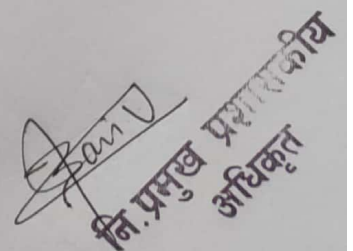 नि.प्रमुख प्रशासकीय
अधिकृत